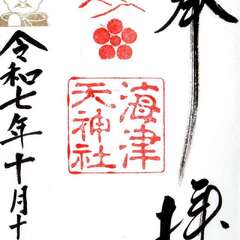 奉拝
海津
天神社
令和七年十月十